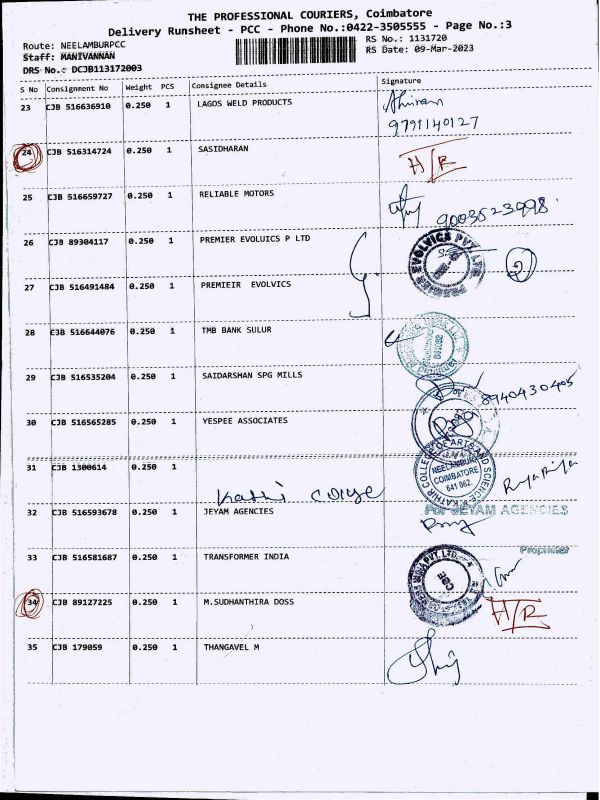 THE PROFESSIONAL COURIERS, Coimbatore
Delivery Runsheet - PCC - Phone No.:0422-3505555 - Page No.:3
Route: NEELAMBURPCC RS No.: 1131720
Staff: MANIVANNAN RS Date: 09-Mar-2023
DRS No.: DCJB113172003
S No Consignment No Weight PCS Consignee Details Signature
23 CJB 516636910 0.250 1 LAGOS WELD PRODUCTS
9791140127
24 CJB 516314724 0.250 1 SASIDHARAN H/R
25 CJB 516659727 0.250 1 RELIABLE MOTORS 9003523998
26 CJB 89304117 0.250 1 PREMIER EVOLUICS P LTD PREMIER EVOLVICS PVT. LTD. 2
27 CJB 516491484 0.250 1 PREMIEIR EVOLVICS
28 CJB 516644076 0.250 1 TMB BANK SULUR
29 CJB 516535204 0.250 1 SAIDARSHAN SPG MILLS 8940430405
30 CJB 516565285 0.250 1 YESPEE ASSOCIATES
31 CJB 1300614 0.250 1 KATHIR COLLEGE OF ARTS AND SCIENCE NEELAMBUR COIMBATORE 641 062
32 CJB 516593678 0.250 1 JEYAM AGENCIES For JEYAM AGENCIES
Proprietor
33 CJB 516581687 0.250 1 TRANSFORMER INDIA
34 CJB 89127225 0.250 1 M.SUDHANTHIRA DOSS H/R
35 CJB 179059 0.250 1 THANGAVEL M